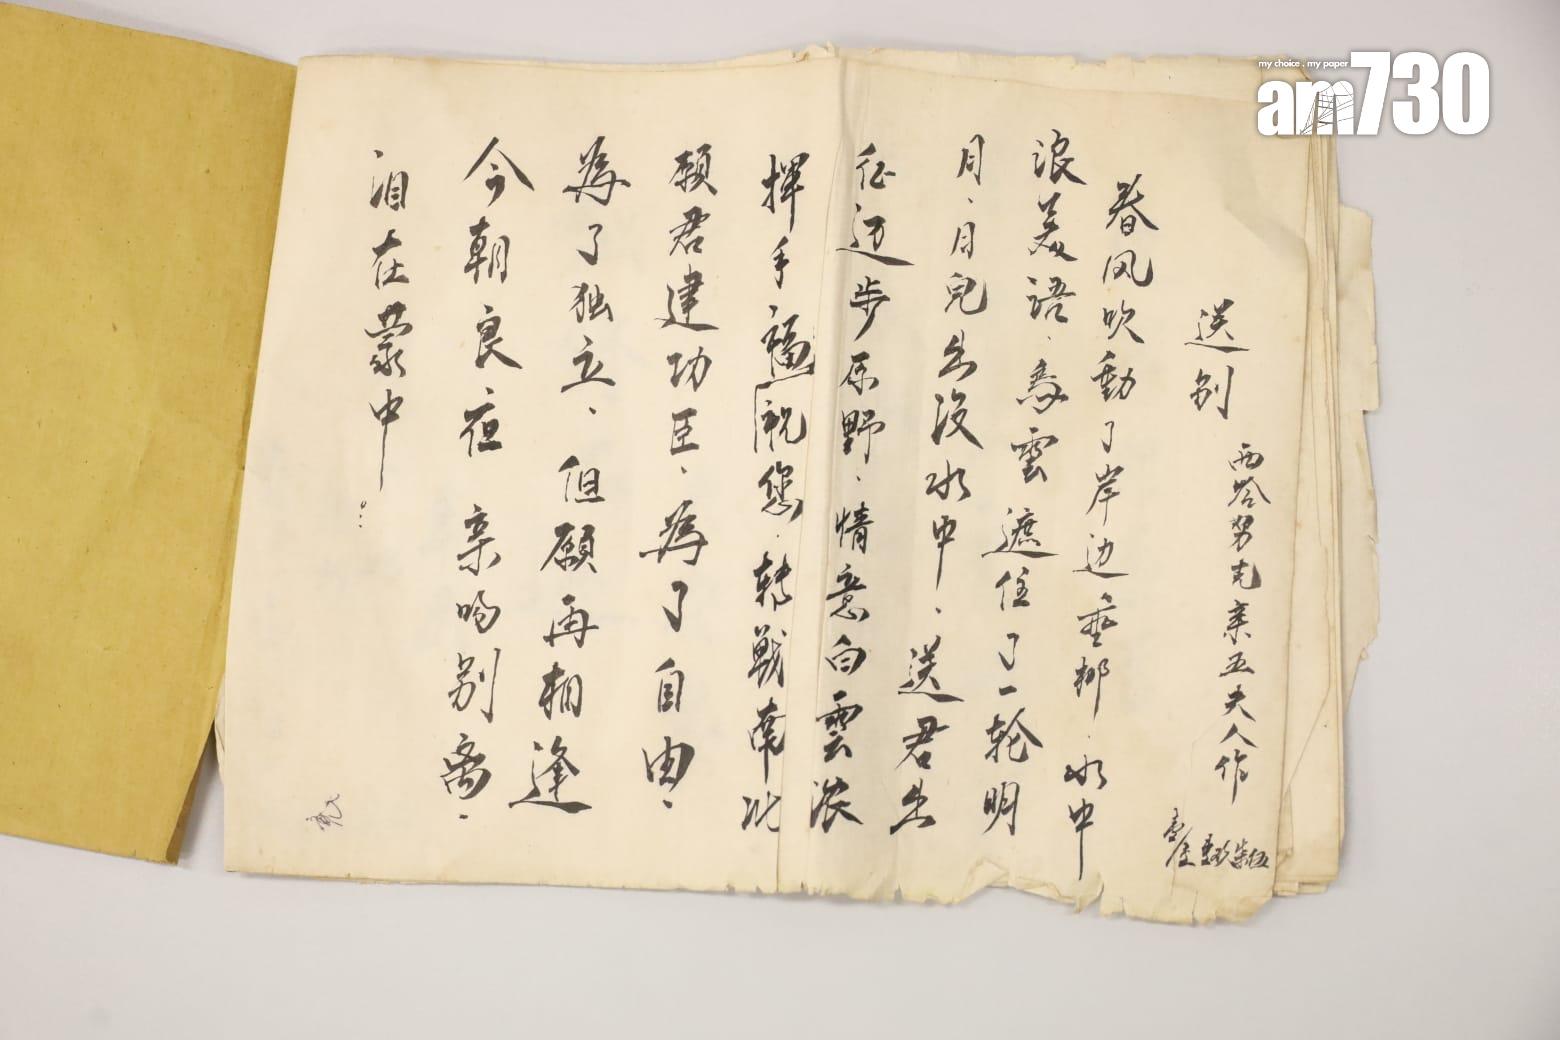 送别
西哈努克亲王夫人作
春风吹動了岸边垂柳、水中
浪美語、烏雲遮住了一轮明
月、月兒出没水中、送君出
征迈步原野、情意白雲浓
揮手、福祝您、转戰南北
願君建功臣、為了自由、
為了独立、但願再相逢
今朝良夜 亲吻别离、
泪在蒙中…
my choice . my paper
am730